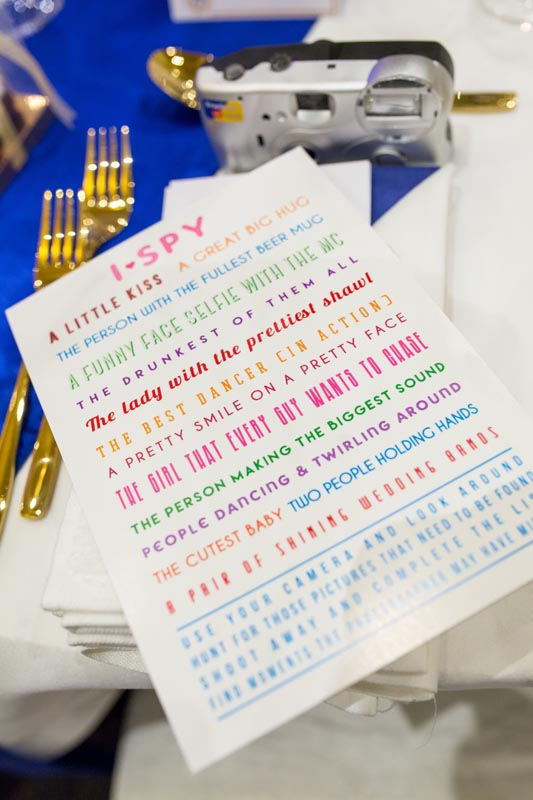 I♥SPY
A LITTLE KISS A GREAT BIG HUG
THE PERSON WITH THE FULLEST BEER MUG
A FUNNY FACE SELFIE WITH THE MC
THE DRUNKEST OF THEM ALL
The lady with the prettiest shawl
THE BEST DANCER (IN ACTION)
A PRETTY SMILE ON A PRETTY FACE
THE GIRL THAT EVERY GUY WANTS TO CHASE
THE PERSON MAKING THE BIGGEST SOUND
PEOPLE DANCING & TWIRLING AROUND
THE CUTEST BABY TWO PEOPLE HOLDING HANDS
A PAIR OF SHINING WEDDING BANDS
USE YOUR CAMERA AND LOOK AROUND
HUNT FOR THOSE PICTURES THAT NEED TO BE FOUND
SHOOT AWAY AND COMPLETE THE
FIND MOMENTS THE PHOTOGRAPHER MAY HAVE